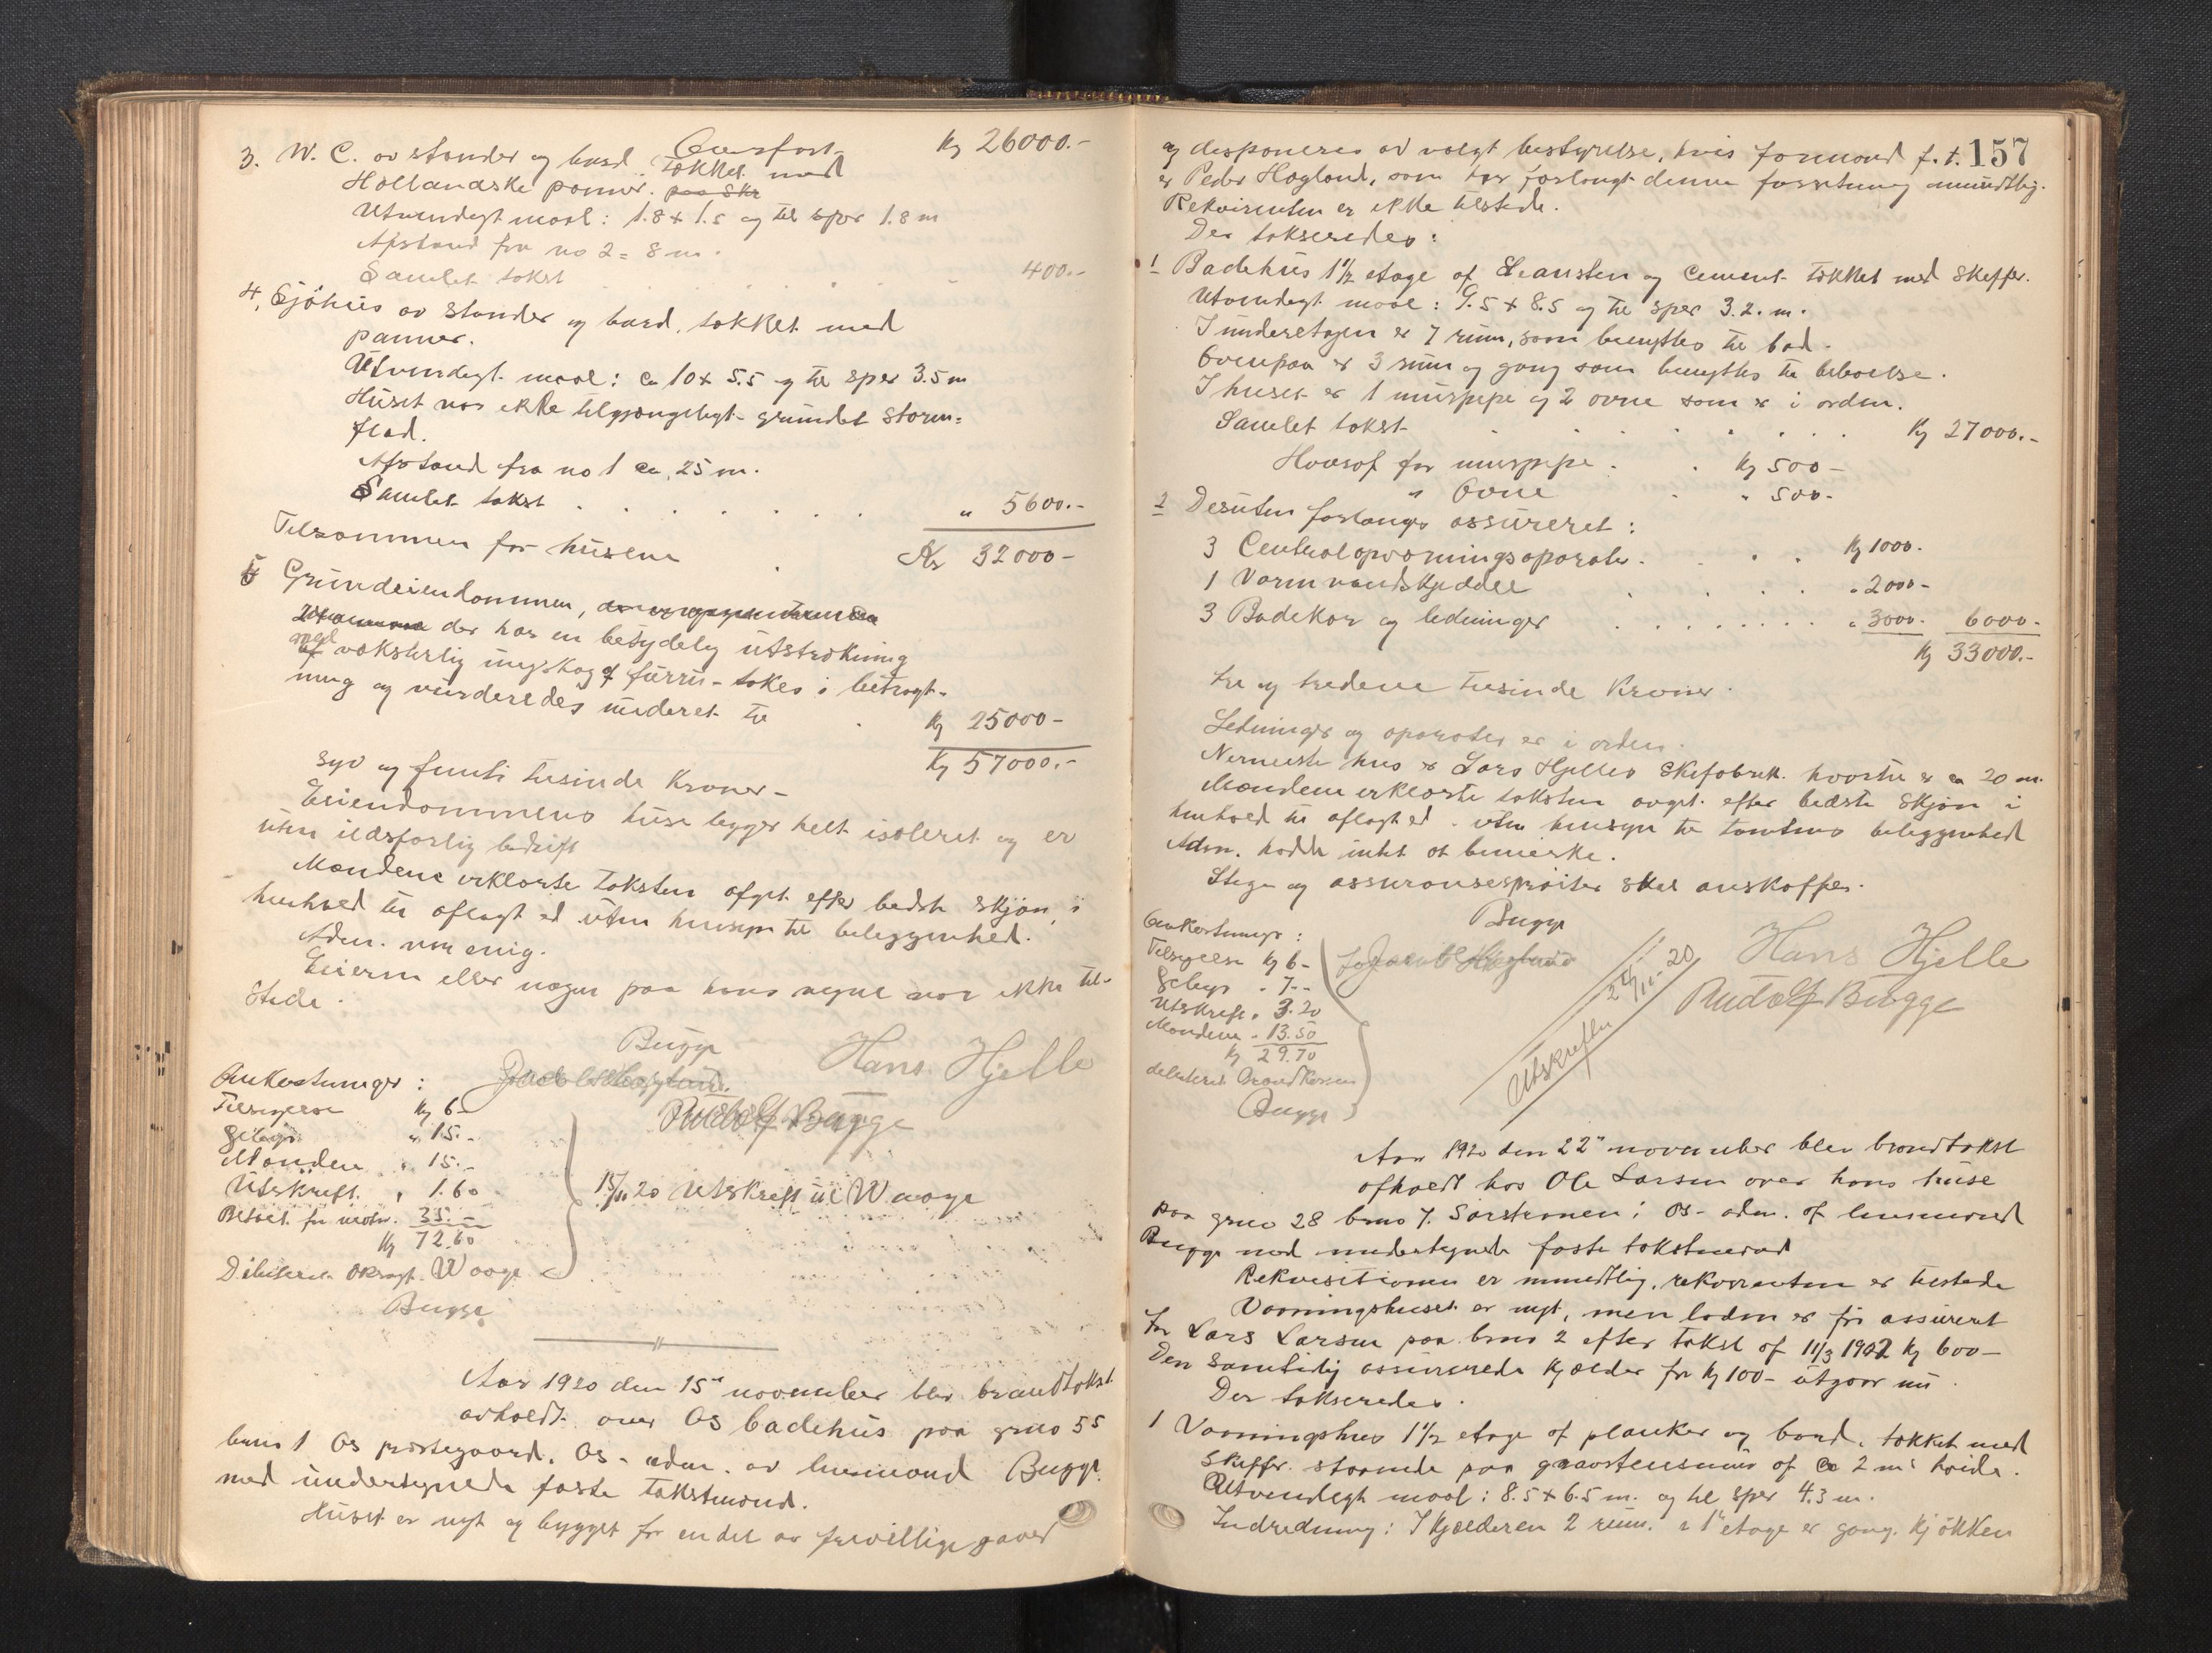 Overført Kr 26000.-
3. W. C. av stender og bord. tækket med
Hollandske panner. paa Skr
Utvendigt maal: 1.8 x 1.5 og til spær 1.8 m
Afstand fra no 2 = 8 m.
Samlet takst 400.-
4. Sjöhus av Stender og bord, tækket med
panner.
Utvendigt maal: ca 10 x 5.5 og til spær 3.5 m
Huset var ikke tilgjængeligt grundet storm-
flod.
Afstand fra no 1 ca. 25 m.
Samlet takst " 5600.-
Tilsammen for husene Kr 32000-
5 Grundeiendommen,
der har en betydelig utstrækning
med vöksterlig ungskog af furru - tokes i betragt-
ning og vurderedes underet til Kr 25000-
Kr 57000.-
syv og femti tusinde Kroner-
Eiendommens huse ligger helt isoleret og er
uten ildsfarlig bedrift
Mændene erklærte taksten afgit efter bedste skjøn, i
henhold til aflagt ed uten hensyn til beliggenhed.
Adm. var enig.
Eieren eller nogen paa hans vegne var ikke til-
stede.
Bugge
Hans Hjelle
Rudolf Bugge
Omkostninger:
Tilsigelse Kr 6-
Gebyr " 15.-
Mændene " 15.-
Utskrift " 1.60
Betalt for 35.-
Kr 72.60
Waage
Bugge
15/11 20 Utskrift til Waage
Aar 1920 den 15de november blev brandtakst
avholdt over Os badehus paa gno 55
bno 1 Os prestegaard, Os - adm. av lensmand Bugge.
med undertegnede faste takstmænd.
Huset er nyt og bygget for en del av frivillige gaver
157
og disponeres av valgt bestyrelse, hvis formand f. t.
er Peder Hagland, som har forlangt denne forretning mundtlig.
Rekvirenten er ikke tilstede.
Der takseredes:
1 Badehus 1 1/2 etage af Leansten og Cement tækket med Skiffer.
Utvendigt maal: 9.5 x 8.5 og til spær 3.2. m.
I underetagen er 7 rum, som benyttes til bad.
Ovenpaa er 3 rum og gang som benyttes til beboelse.
I huset er 1 murpipe og 2 ovne som er i orden.
Samlet takst Kr 27000.-
Hvoraf for murpipe Kr 500-
" Ovne " 500-
2 Desuten forlanges assureret:
3 Centralopvarmingsaparater Kr 1000.
1 Varmvandskjeddel " 2000-
3 Badekar og ledninger " 3000. 6000-
Kr 33000.-
tre og tredeve tusinde Kroner.
Ledninger og aparater er i orden.
Nærmeste hus er Lars Hjelles Skofabrik. hvortil er ca 20 m.
Mændene erklærte taksten avgit efter bedste Skjøn i
henhold til aflagt ed - uten hensyn til tomtens beliggenhed
Adm. hadde intet at bemerke.
Stige og assuransesprøiter skal anskaffes.
Bugge
Hans Hjelle
Rudolf Bugge
Omkostninger:
Tilsigelse Kr 6-
Gebyr " 7--
Utskrift " 3.20
Mændene " 13.50
Kr 29.70
debiteret Brandkassen
Bugge
Utskreften 24/11-20
Aar 1920 den 22de november blev brandtakst
afholdt hos Ole Larsen over hans huse
paa gno 28 bno 7. Sørstrønen i Os - adm. af lensmand
Bugge med undertegnede faste takstmænd
Rekvisitionen er mundtlig, rekvirenten er tilstede
Vaaningshuset er nyt, men laden er før assureret
for Lars Larsen paa bno 2 efter takst af 11/3 1902 Kr 600-
Den samtidig assurerede Kjælder for Kr 100- utgaar nu.
Der takseredes.
1 Vaaningshus 1 1/2 etage af planker og bord. tækket med
Skiffer. staaende paa graastensmur af ca 2 m's høide.
Utvendigt maal: 8.5 x 6.5 m. og til spær 4.3 m.
Indredning: I Kjælderen 2 rum. i 1ste etage er gang. Kjøkken